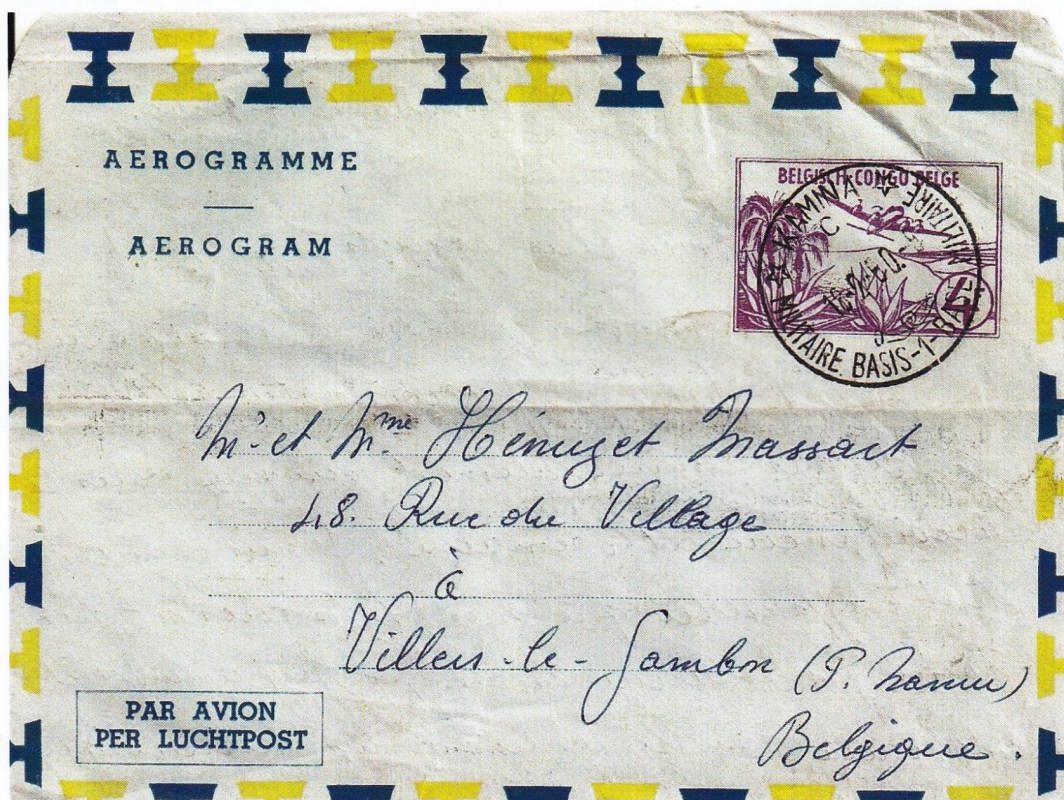 AEROGRAMME
AEROGRAM
BELGISCH CONGO BELGE
4
KAMINA
C
MILITAIRE BASIS-1-BASE MILITAIRE
Mr et Mme Hénuzet Massart
48. Rue du Village
à
Villers-le-Gambon (P. Namur)
Belgique.
PAR AVION
PER LUCHTPOST